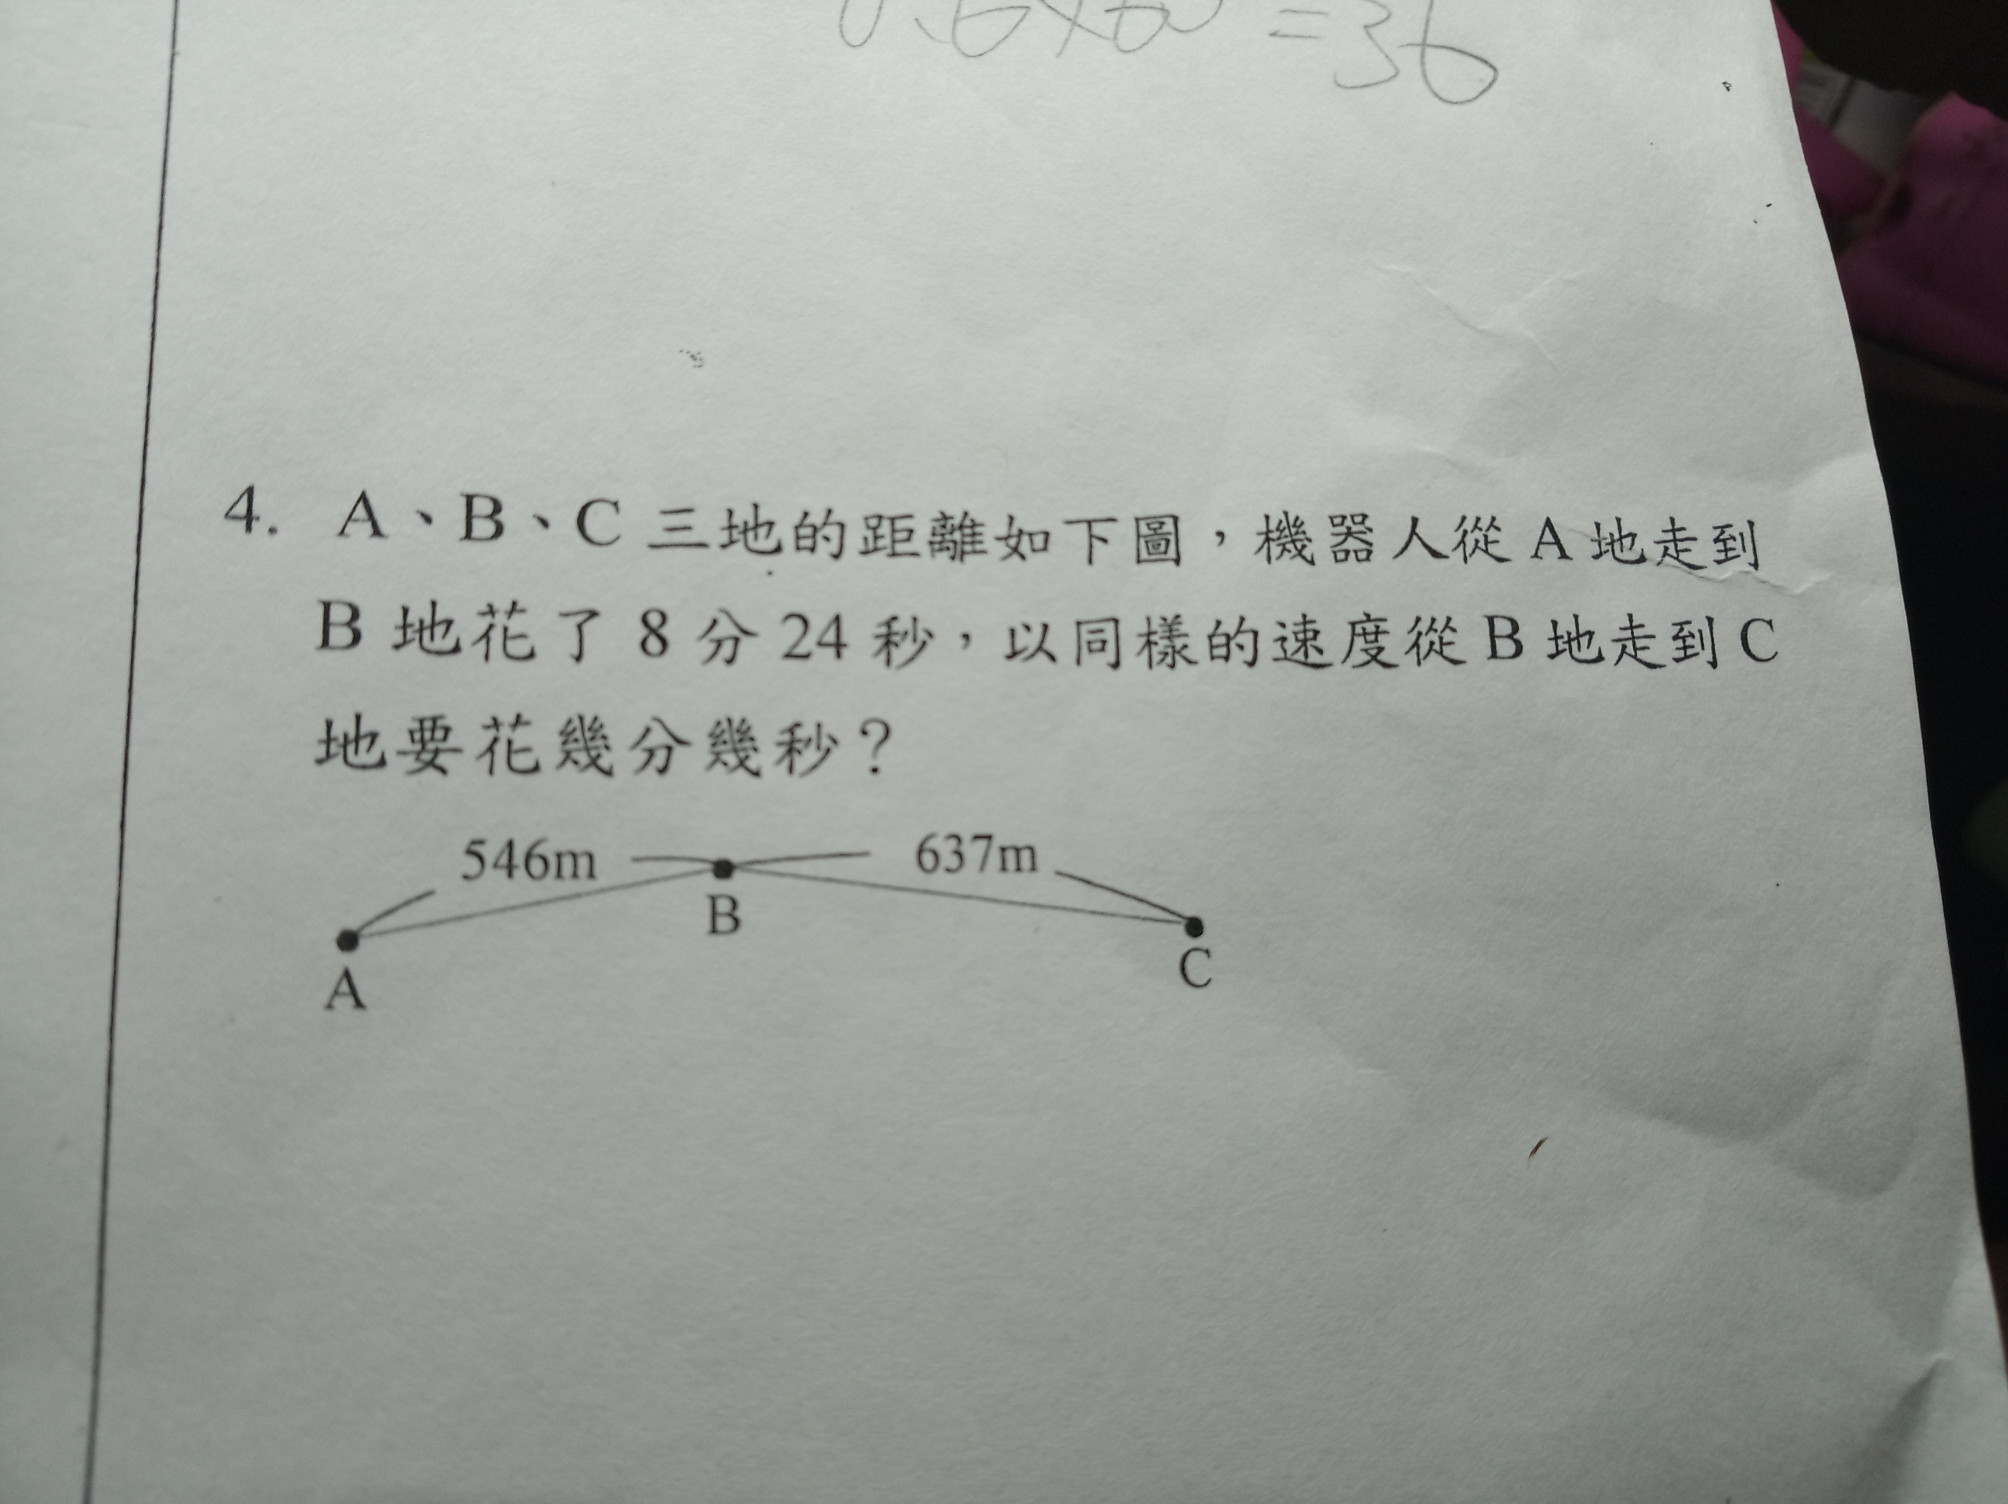 0.6×60=36
4. A、B、C 三地的距離如下圖，機器人從 A 地走到
B 地花了 8 分 24 秒，以同樣的速度從 B 地走到 C
地要花幾分幾秒？
546m 637m
B
C
A